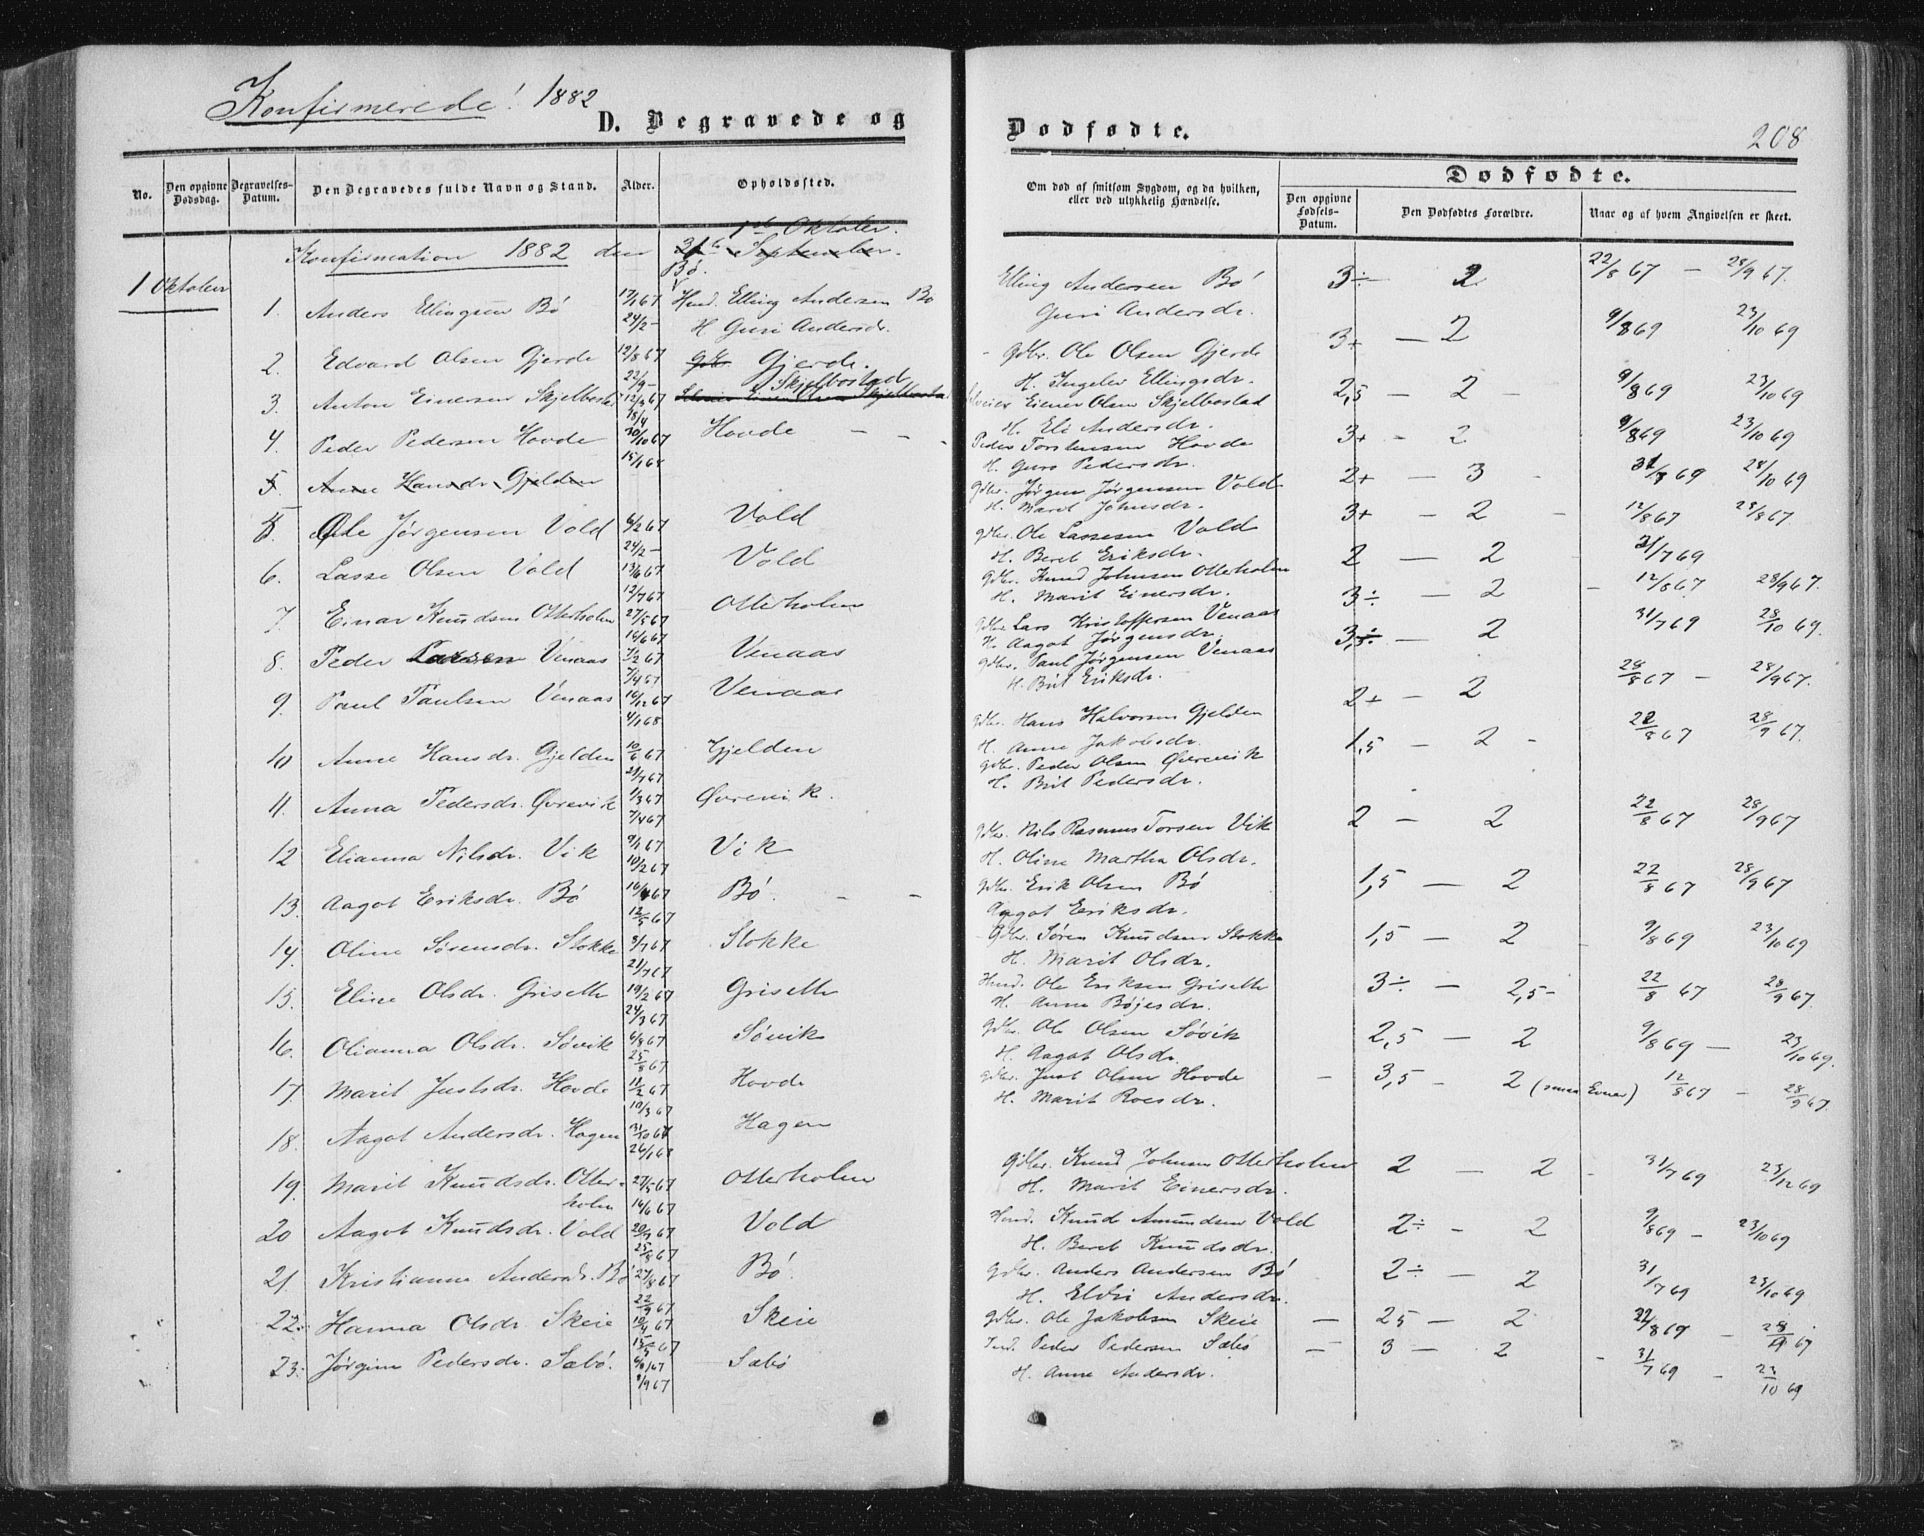 Konfirmerede! 1882
D. Begravede og
No.
Den opgivne Dødsdag.
Begravelses-Datum.
Den Begravedes fulde Navn og Stand.
Alder.
Opholdssted.
1ste Oktober.
Konfirmation 1882 den September.
1 Oktober
Bø.
1. Anders Ellingsen Bø 17/1 67 Huusm. Elling Andersen Bø
24/2 - H Guri Andersdr.
2. Edvard Olsen Gjerde 12/8 67 Gjerde
22/9 - Skjelbostad
3. Anton Einersen Skjelbostad 12/3 67
18/4
4. Peder Pedersen Hovde 30/10 67 Hovde - - -
15/1 68
5. Anne Hansdr. Gjelden
5 Ole Jørgensen Vold 6/2 67 Vold
24/2 -
6. Lasse Olsen Vold 13/6 67 Vold
12/7 67
7. Einar Knudsen Otterholm 27/5 67 Otterholm
16/6 67
8. Peder Larsen Venaas 7/2 67 Venaas
7/4 67
9. Paul Paulsen Venaas 16/12 67 Venaas
4/1 68
10 Anne Hansdr. Gjelden 10/6 67 Gjelden
21/7 67
11. Anna Pedersdr. Øvrevik 1/3 67 Øvrevik.
7/4 67
12 Elianna Nilsdr. Vik 9/1 67 Vik
10/2 67
13. Aagot Eriksdr. Bø 16/4 67 Bø. - -
12/5 67
14. Oline Sørensdr. Stokke 3/7 67 Stokke
21/7 67
15. Eline Olsdr. Griseth 19/2 67 Griseth
24/3 67
16. Olianna Olsdr. Søvik 6/8 67 Søvik
25/8 67
17. Marit Justsdr. Hovde 11/2 67 Hovde
10/3 67
18. Aagot Andersdr. Hagen 31/10 67 Hagen
26/1 68
19. Marit Knudsdr. Otter- 27/5 67 Otterholm
holm 16/6 67
20 Aagot Knudsdr. Vold 20/7 67 Vold
25/8 67
21. Kristianne Andersdr. Bø 27/8 67 Bø.
22/9 67
22. Hanna Olsdr Skeie 10/4 67 Skeie
23. Jørgine Pedersdr. Sæbø. Sæbø
Dødfødte.
208
Om død af smitsom Sygdom, og da hvilken, eller ved ulykkelig Hændelse.
Dødfødte.
Den opgivne Fødsels-Datum.
Den Dødfødtes Forældre.
Naar og af hvem Angivelsen er skeet.
Elling Andersen Bø 3÷ - 2 22/8 67 - 28/9 67.
Guri Andersdr.
Gdbr. Ole Olsen Gjerde 3+ - 2 9/8 69 23/10 69
H. Ingelev Ellingsdr.
Einer Olsen Skjelbostad 2,5 - 2 - 9/8 69 23/10 69
H. Eli Andersdr.
Peder Torstensen Hovde 3+ - 2 9/8 69 23/10 69
H. Guro Pedersdr.
Gdbr. Jørgen Jørgensen Vold 2+ - 3 - 31/8 69 28/10 69
H. Marit Johnsdr.
Gdbr. Ole Lassesen Vold 3+ - 2 - 12/8 67 28/8 67
H. Beret Eriksdr.
Gdbr. Knud Johnsen Otterholm 2 - 2 31/7 69
H. Marit Einersdr.
Gdbr Lars Kristoffersen Venaas 3÷ - 2 - 12/8 67 28/9 67.
H. Aagot Jørgensdr.
Gdbr. Paul Jørgensen Venaas 3,5 - 2 31/7 69 28/10 69.
H. Brit Eriksdr.
Gdbr. Hans Halvorsen Gjelden 2+ - 2 28/8 67 - 28/9 67.
H. Anne Jakobsdr.
Gdbr. Peder Olsen Øvrevik 1,5 - 2 - 22/8 67 28/9 67.
H. Brit Pedersdr.
Gdbr. Nils Rasmus Torsen Vik 2 - 2 22/8 67 28/9 67
H. Oline Martha Olsdr.
Gdbr. Erik Olsen Bø 1,5 - 2 22/8 67 28/9 67
Aagot Eriksdr.
Gdbr. Søren Knudsen Stokke 1,5 - 2 - 9/8 69 23/10 69
H. Marit Olsdr.
Huusm. Ole Eriksen Griseth 3÷ - 2,5 - 22/8 67 28/9 67.
H. Anne Bøjesdr.
Gdbr. Ole Olsen Søvik 2,5 - 2 9/8 69 - 23/10 69.
H. Aagot Olsdr.
Gdbr. Just Olsen Hovde - 3,5 - 2 12/8 67 - 28/9 67.
H. Marit Roesdr.
Gdbr. Knud Johnsen Otterholm 2 - 2 - 31/7 69 23/12 69
H. Marit Einersdr.
Huusm. Knud Amundsen Vold 2÷ - 2 9/8 69 - 23/10 69
H. Beret Knudsdr.
Gdbr. Anders Andersen Bø 2÷ - 2 31/7 69 23/10 69
H. Eldri Andersdr.
Gdbr. Ole Jakobsen Skeie - 25 - 2
Ind. Peder Pedersen Sæbø - 3 - 2 - 31/7 69 - 23/10 69
H. Anne Andersdr.